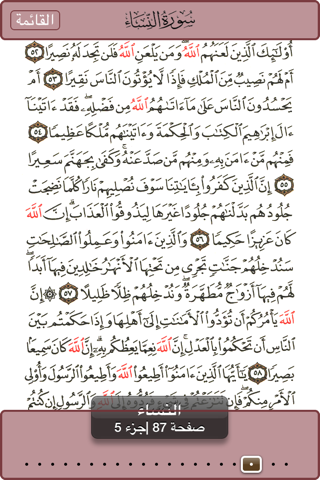 القائمة
سُورَةُ النِّسَاءِ
أُوْلَٰٓئِكَ ٱلَّذِينَ لَعَنَهُمُ ٱللَّهُ وَمَن يَلْعَنِ ٱللَّهُ فَلَن تَجِدَ لَهُۥ نَصِيرًا ٥٢ أَمْ
لَهُمْ نَصِيبٌ مِّنَ ٱلْمُلْكِ فَإِذًا لَّا يُؤْتُونَ ٱلنَّاسَ نَقِيرًا ٥٣ أَمْ
يَحْسُدُونَ ٱلنَّاسَ عَلَىٰ مَآ ءَاتَىٰهُمُ ٱللَّهُ مِن فَضْلِهِۦ فَقَدْ ءَاتَيْنَآ
ءَالَ إِبْرَٰهِيمَ ٱلْكِتَٰبَ وَٱلْحِكْمَةَ وَءَاتَيْنَٰهُم مُّلْكًا عَظِيمًا ٥٤
فَمِنْهُم مَّنْ ءَامَنَ بِهِۦ وَمِنْهُم مَّن صَدَّ عَنْهُ وَكَفَىٰ بِجَهَنَّمَ سَعِيرًا
٥٥ إِنَّ ٱلَّذِينَ كَفَرُوا۟ بِـَٔايَٰتِنَا سَوْفَ نُصْلِيهِمْ نَارًا كُلَّمَا نَضِجَتْ
جُلُودُهُم بَدَّلْنَٰهُمْ جُلُودًا غَيْرَهَا لِيَذُوقُوا۟ ٱلْعَذَابَ إِنَّ ٱللَّهَ
كَانَ عَزِيزًا حَكِيمًا ٥٦ وَٱلَّذِينَ ءَامَنُوا۟ وَعَمِلُوا۟ ٱلصَّٰلِحَٰتِ
سَنُدْخِلُهُمْ جَنَّٰتٍ تَجْرِى مِن تَحْتِهَا ٱلْأَنْهَٰرُ خَٰلِدِينَ فِيهَآ أَبَدًا
لَّهُمْ فِيهَآ أَزْوَٰجٌ مُّطَهَّرَةٌ وَنُدْخِلُهُمْ ظِلًّا ظَلِيلًا ٥٧ إِنَّ
ٱللَّهَ يَأْمُرُكُمْ أَن تُؤَدُّوا۟ ٱلْأَمَٰنَٰتِ إِلَىٰٓ أَهْلِهَا وَإِذَا حَكَمْتُم بَيْنَ
ٱلنَّاسِ أَن تَحْكُمُوا۟ بِٱلْعَدْلِ إِنَّ ٱللَّهَ نِعِمَّا يَعِظُكُم بِهِۦٓ إِنَّ ٱللَّهَ كَانَ سَمِيعًا
بَصِيرًا ٥٨ يَٰٓأَيُّهَا ٱلَّذِينَ ءَامَنُوٓا۟ أَطِيعُوا۟ ٱللَّهَ وَأَطِيعُوا۟ ٱلرَّسُولَ وَأُو۟لِى
ٱلْأَمْرِ مِنكُمْ فَإِن تَنَٰزَعْتُمْ فِى شَىْءٍ فَرُدُّوهُ إِلَى ٱللَّهِ وَٱلرَّسُولِ إِن كُنتُمْ
النساء
صفحة 87 |جزء 5